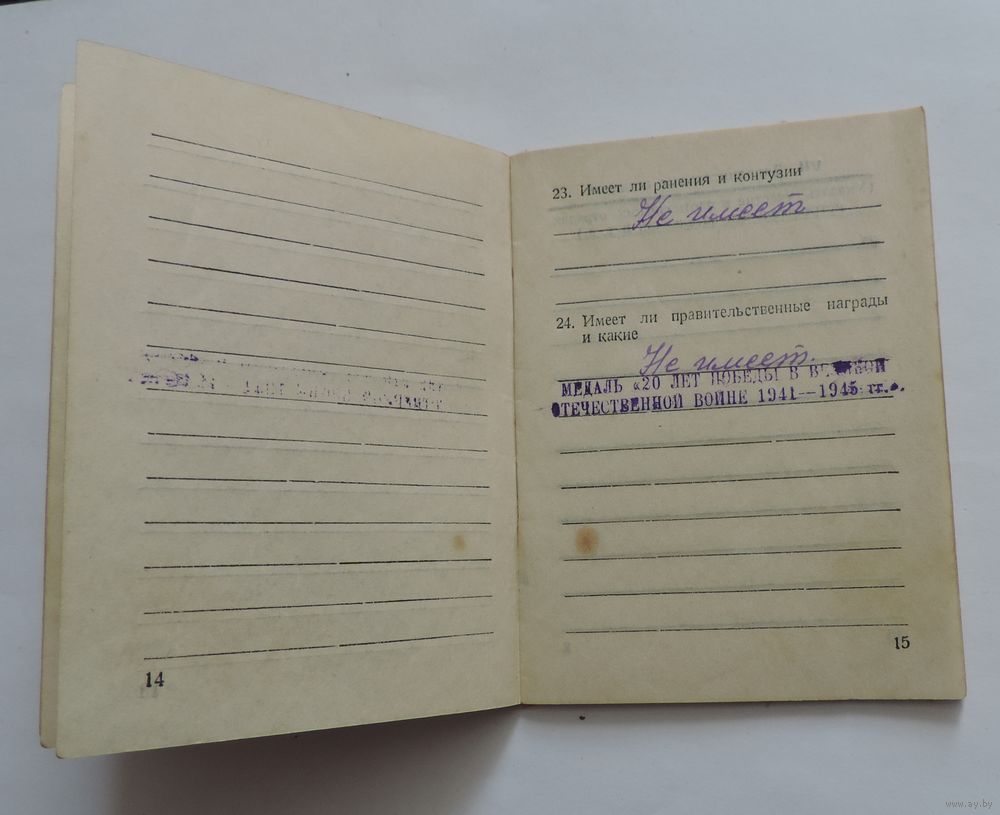 14
23. Имеет ли ранения и контузии
Не имеет
24. Имеет ли правительственные награды
и какие
Не имеет.
МЕДАЛЬ «20 ЛЕТ ПОБЕДЫ В ВЕЛИКОЙ
ОТЕЧЕСТВЕННОЙ ВОЙНЕ 1941—1945 гг.».
15
www.ay.by